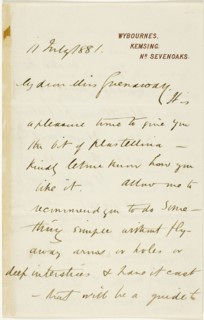 WYBOURNES,
KEMSING,
Nr SEVENOAKS.
11 July 1881.
My dear Miss Greenaway. It is
a pleasure to me to give you
the bit of plastellina —
kindly let me know how you
like it. Allow me to
recommend you to do some-
thing simple without fly-
away arms, or holes or
deep interstices & have it cast
— that will be a guide to